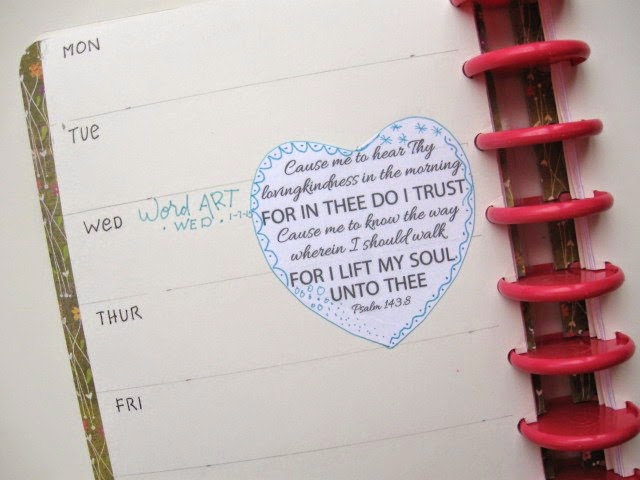 MON
TUE
WED Word ART
• WED • 1-7-15
Cause me to hear Thy
lovingkindness in the morning
FOR IN THEE DO I TRUST
Cause me to know the way
wherein I should walk
FOR I LIFT MY SOUL
UNTO THEE
Psalm 143:8
THUR
FRI